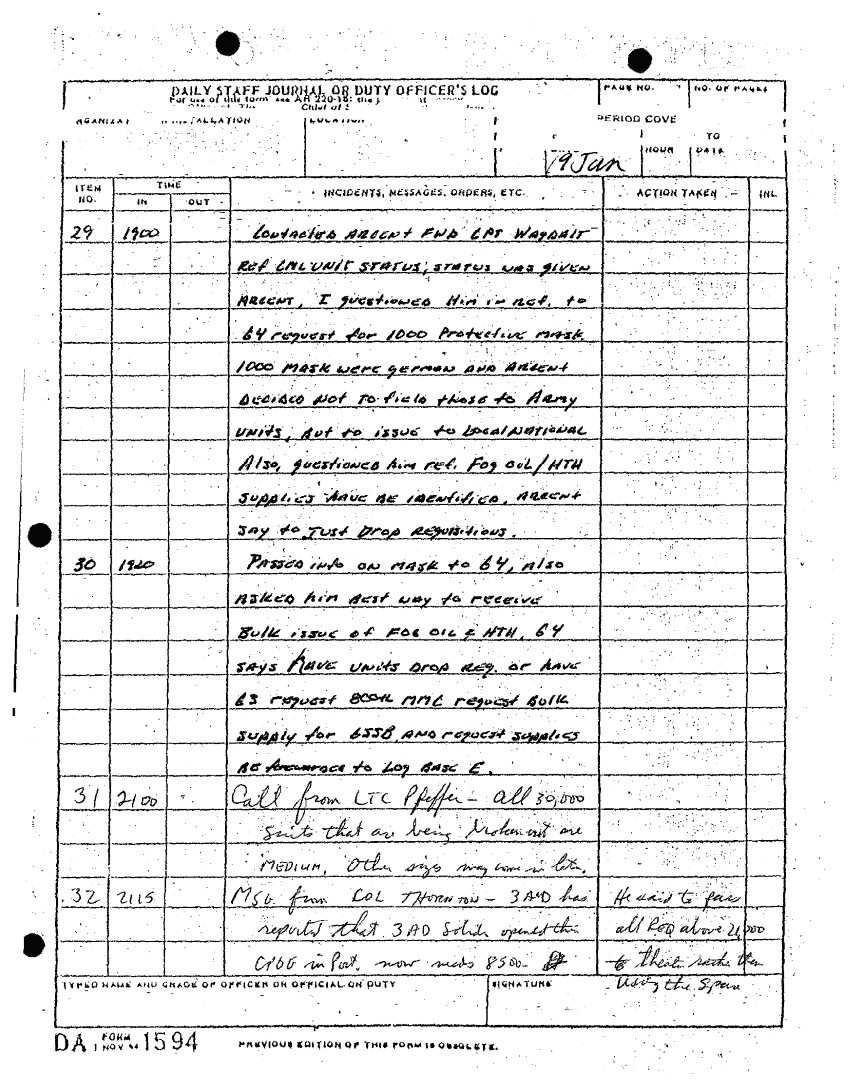 DAILY STAFF JOURNAL OR DUTY OFFICER'S LOG
PAGE NO. NO. OF PAGES
For use of this form see AR 220-15; the
LOCATION
PERIOD COVE
TO
19 Jan HOUR DATE
ITEM NO. TIME IN OUT INCIDENTS, MESSAGES, ORDERS, ETC. ACTION TAKEN INL
29 1900 CONTACTED ARCENT FWD CPT
REF CML UNIT STATUS; STATUS WAS GIVEN
ARCENT, I QUESTIONED Him in Ref. to
G4 request for 1000 Protective mask.
1000 MASK were german AND ARCENT
DECIDED NOT TO field those to Army
UNITS, BUT to issue to LOCAL NATIONAL
Also, questioned him ref. FOG OIL/HTH
SUPPLIES HAVE BE IDENTIFIED. ARCENT
SAY to JUST DROP REQUISITIONS.
30 1920 PASSED info ON MASK to G4, Also
ASKED him BEST way to receive
Bulk issue of FOG OIL & HTH. G4
SAYS HAVE UNITS DROP REQ. or have
G3 request MMC request BULK
SUPPLY for AND request SUPPLIES
BE forwarded to LOG BASE E.
31 2100 Call from LTC Pfeffer – all 30,000
suits that are being broken out are
MEDIUM. Other sizes may come in later.
32 2115 MSG from COL THORNTON – 3AD has He said to pass
reported that 3AD Soldiers opened their all REQ above 21,000
CPOG in Port. now needs 8500. to theater rather then
using the Spare
TYPED NAME AND GRADE OF OFFICER OR OFFICIAL ON DUTY SIGNATURE
DA FORM 1594
1 NOV
PREVIOUS EDITION OF THIS FORM IS OBSOLETE.